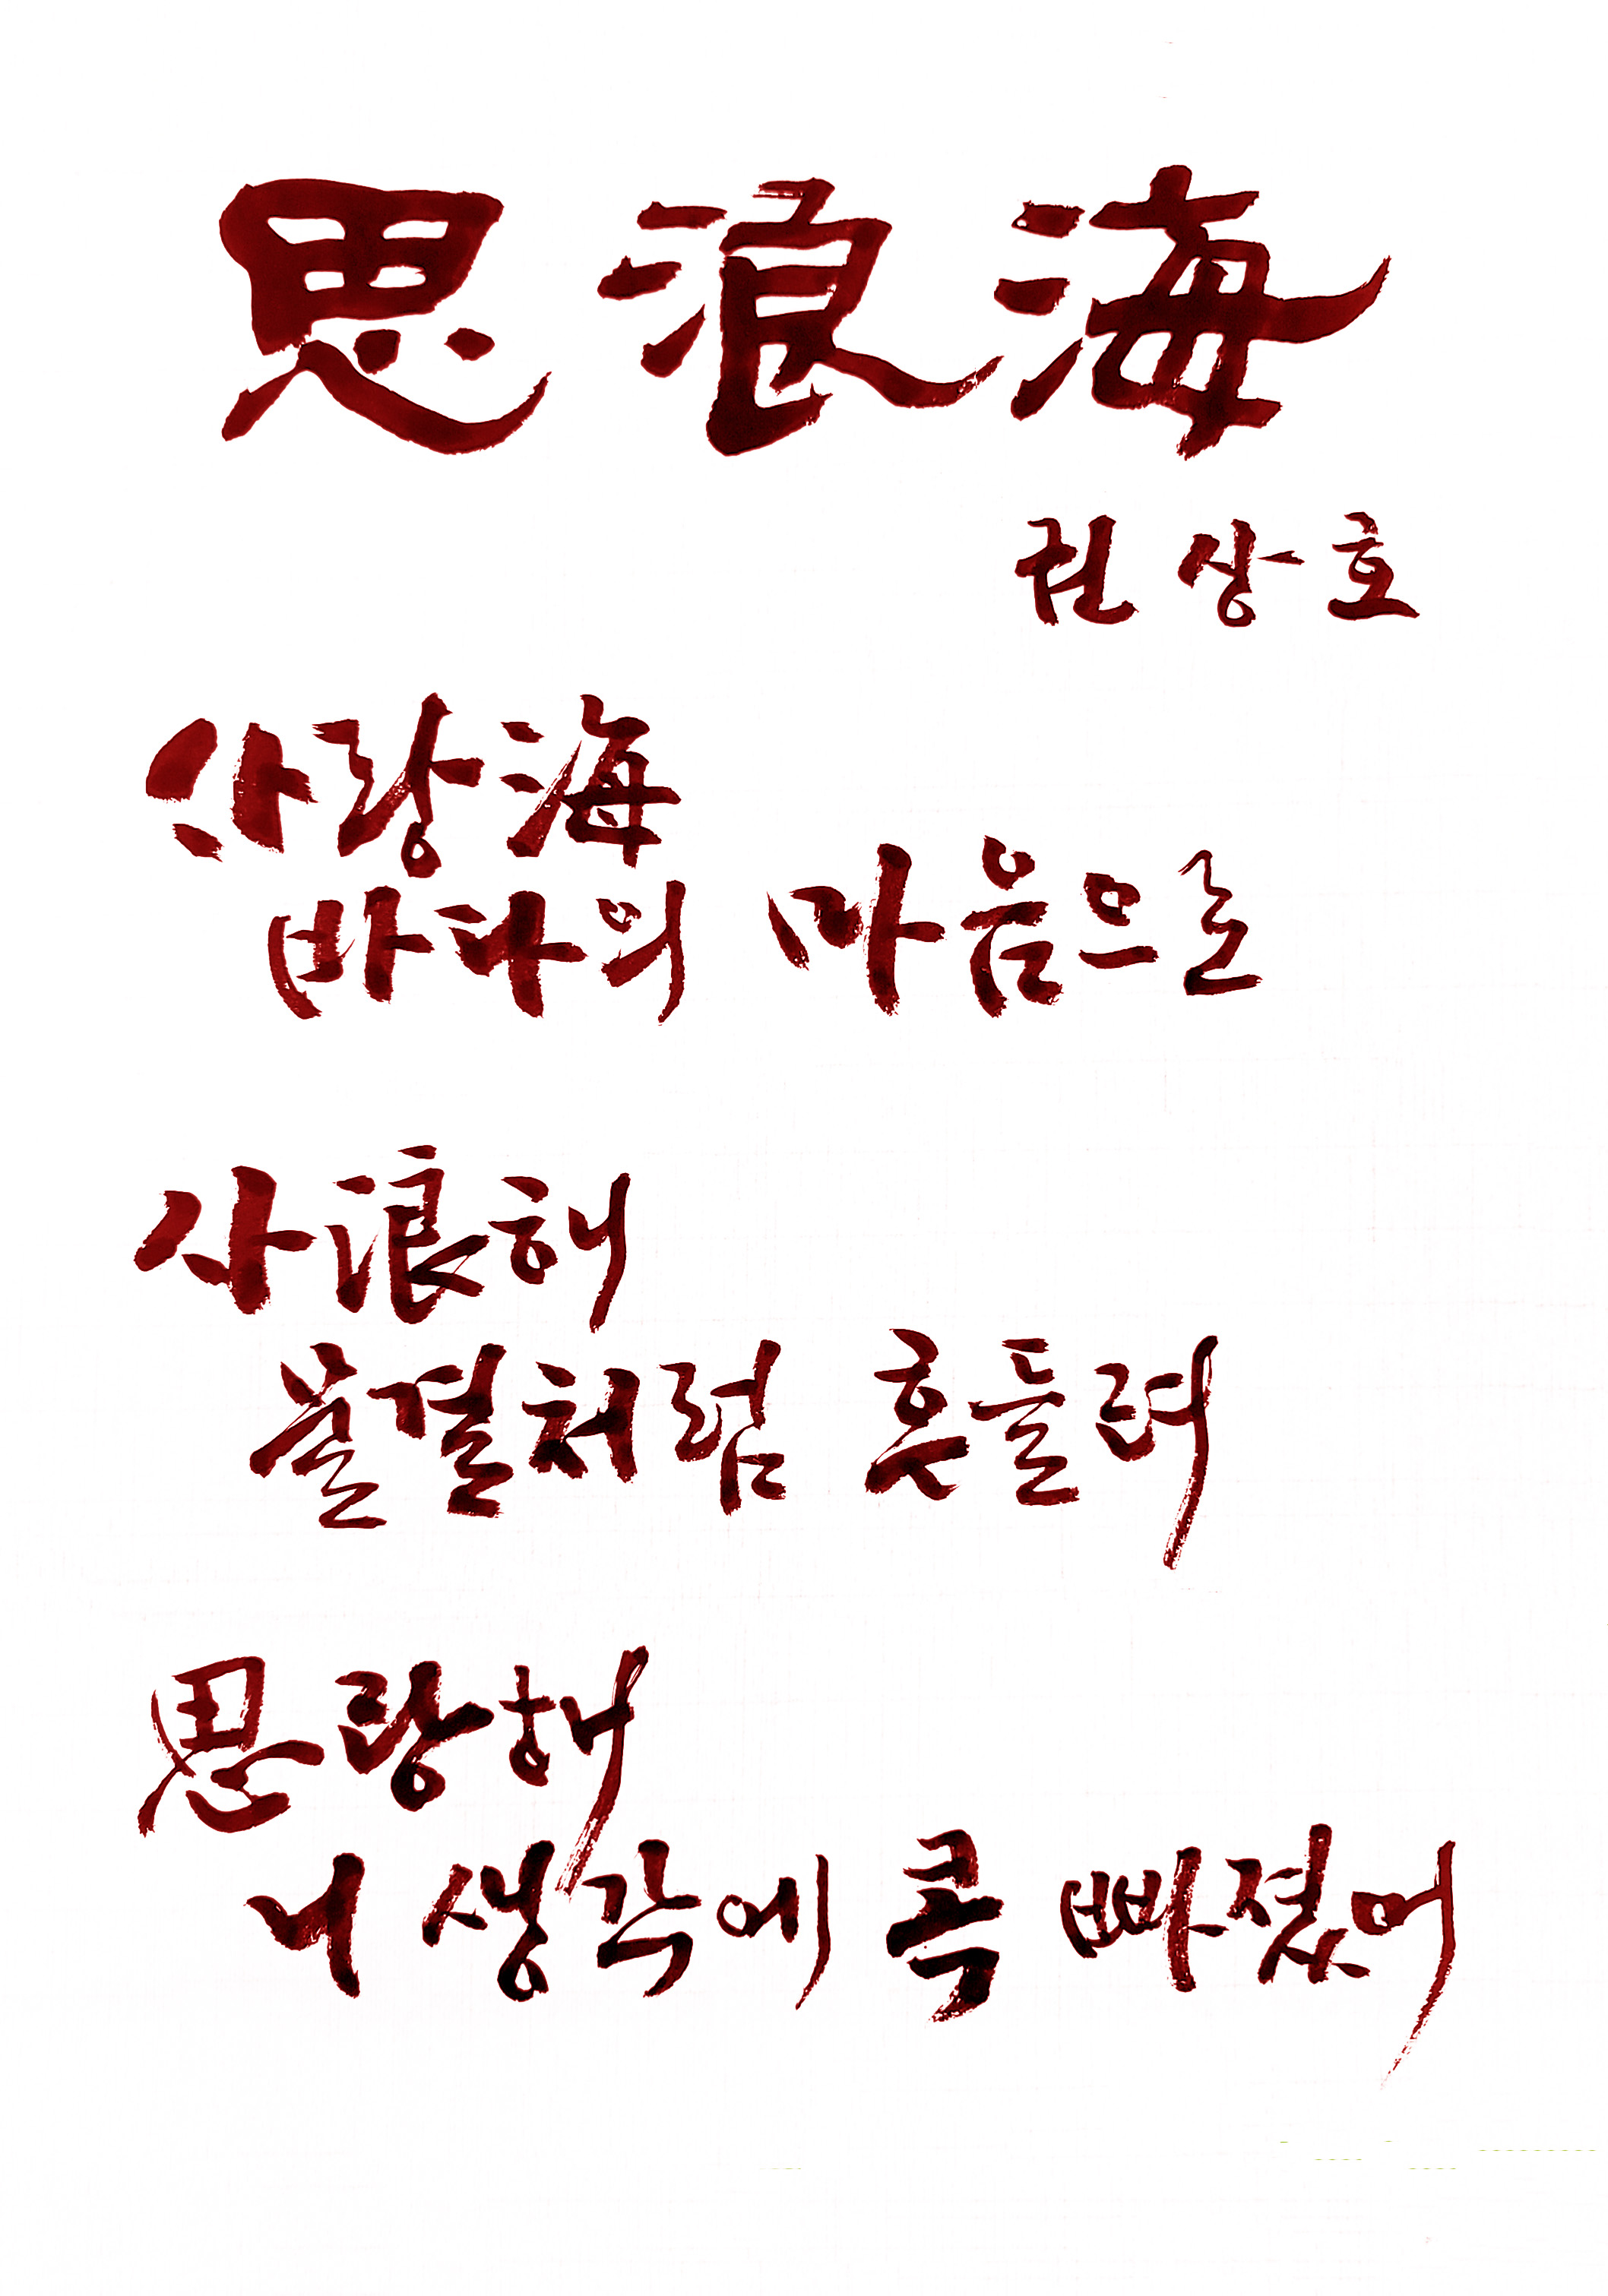 思浪海
권상호
사랑海
바다의 마음으로
사浪해
물결처럼 흔들려
思랑해
너 생각에 콕 빠졌어